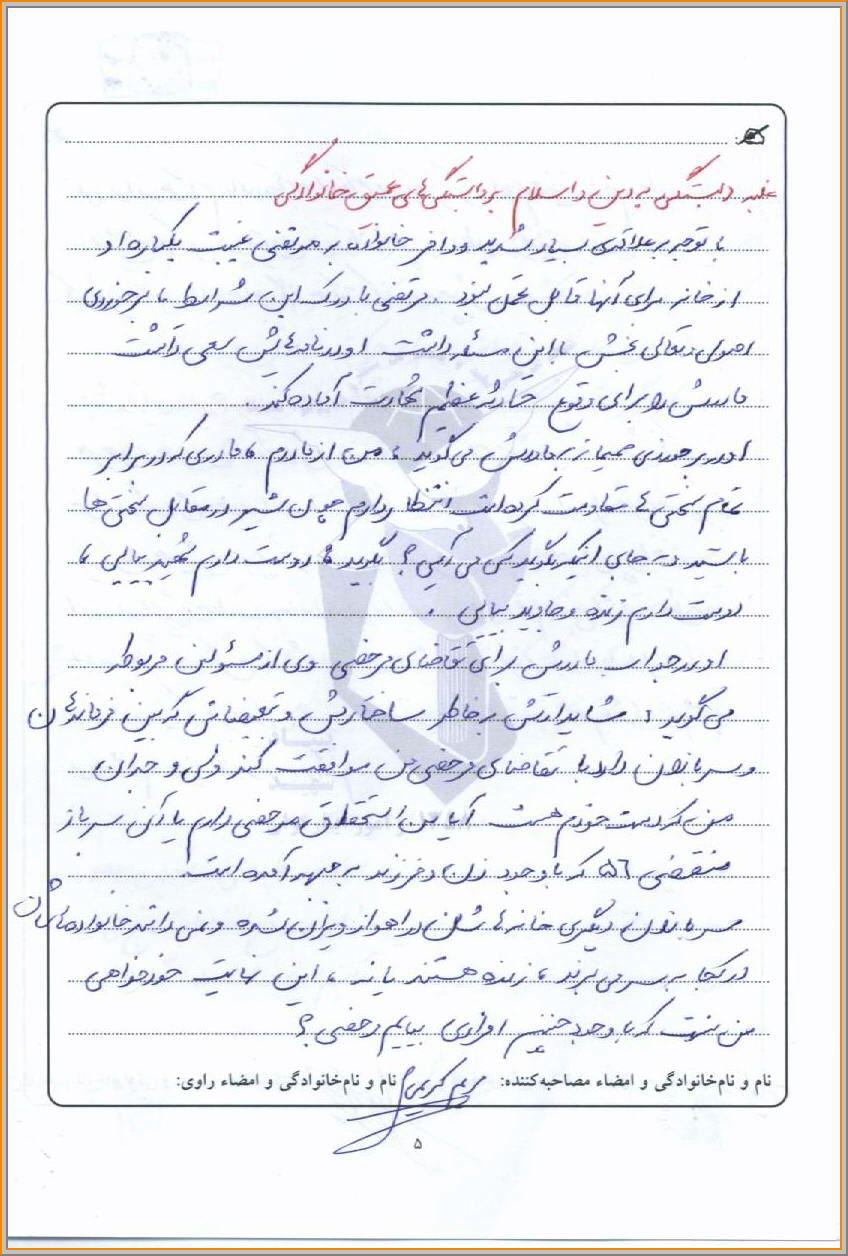 غلبه دلبستگی به دین و اسلام بر دلبستگی‌های عمیق خانوادگی
با توجه به علاقه‌ی بسیار شدید و وافر خانواده به مرتضی غیبت یکباره او
از خانه برای آنها قابل تحمل نبود. مرتضی با درک این شرایط برخوردی
اصولی و تعالی بخش با این مسئله داشت او در نامه‌هایش سعی داشت
مادرش را برای وقوع حادثه عظیم شهادت آماده کند.
او در برخوردی صمیمانه به مادرش می‌گوید: من از مادرم، مادری که در برابر
تمام سختی‌ها مقاومت کرده است انتظار دارم چون شیر در مقابل سختی‌ها
باشید و به جای اینکه بگوید کی می‌آیی؟ بگوید: دوست دارم شهید بیایی،
دوست دارم زنده و جاوید بیایی.
او در جواب مادرش برای تقاضای مرخصی وی از مسئولین مربوطه
می‌گوید: شاید ارتش به خاطر ساختارش و تبعیضاتی که بین فرماندهان
و سربازان دارد با تقاضای مرخصی من موافقت کند ولی وجدان
من که دست خودم هست آیا من استحقاق مرخصی دارم یا آن سرباز
منقضی ۵۶ که با وجود زن و فرزند به جبهه آمده است.
سربازان دیگری خانه‌هاشان در اهواز ویران شده و نمی‌دانند خانواده‌هاشان
در کجا به سر می‌برند، زنده هستند یا نه، این نهایت خودخواهی
من نیست که با وجود چنین افرادی بیایم مرخصی؟
نام و نام‌خانوادگی و امضاء مصاحبه‌کننده: مریم کریمی نام و نام‌خانوادگی و امضاء راوی:
۵